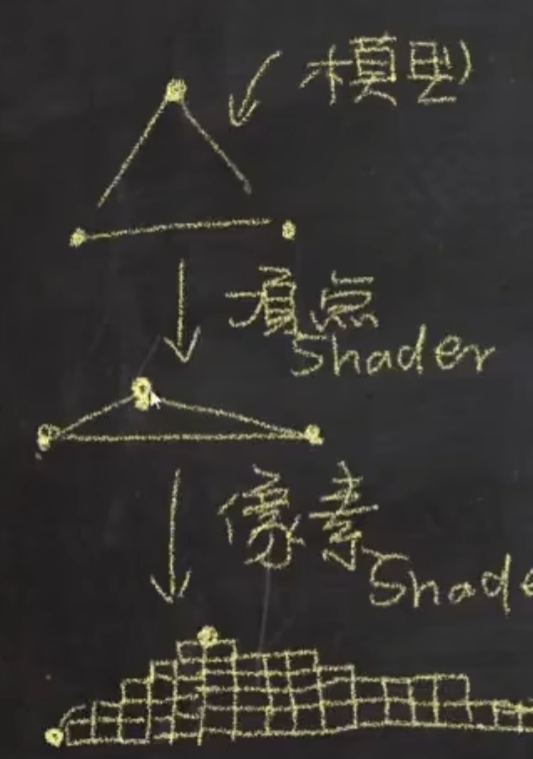 模型
顶点
Shader
像素
Shade